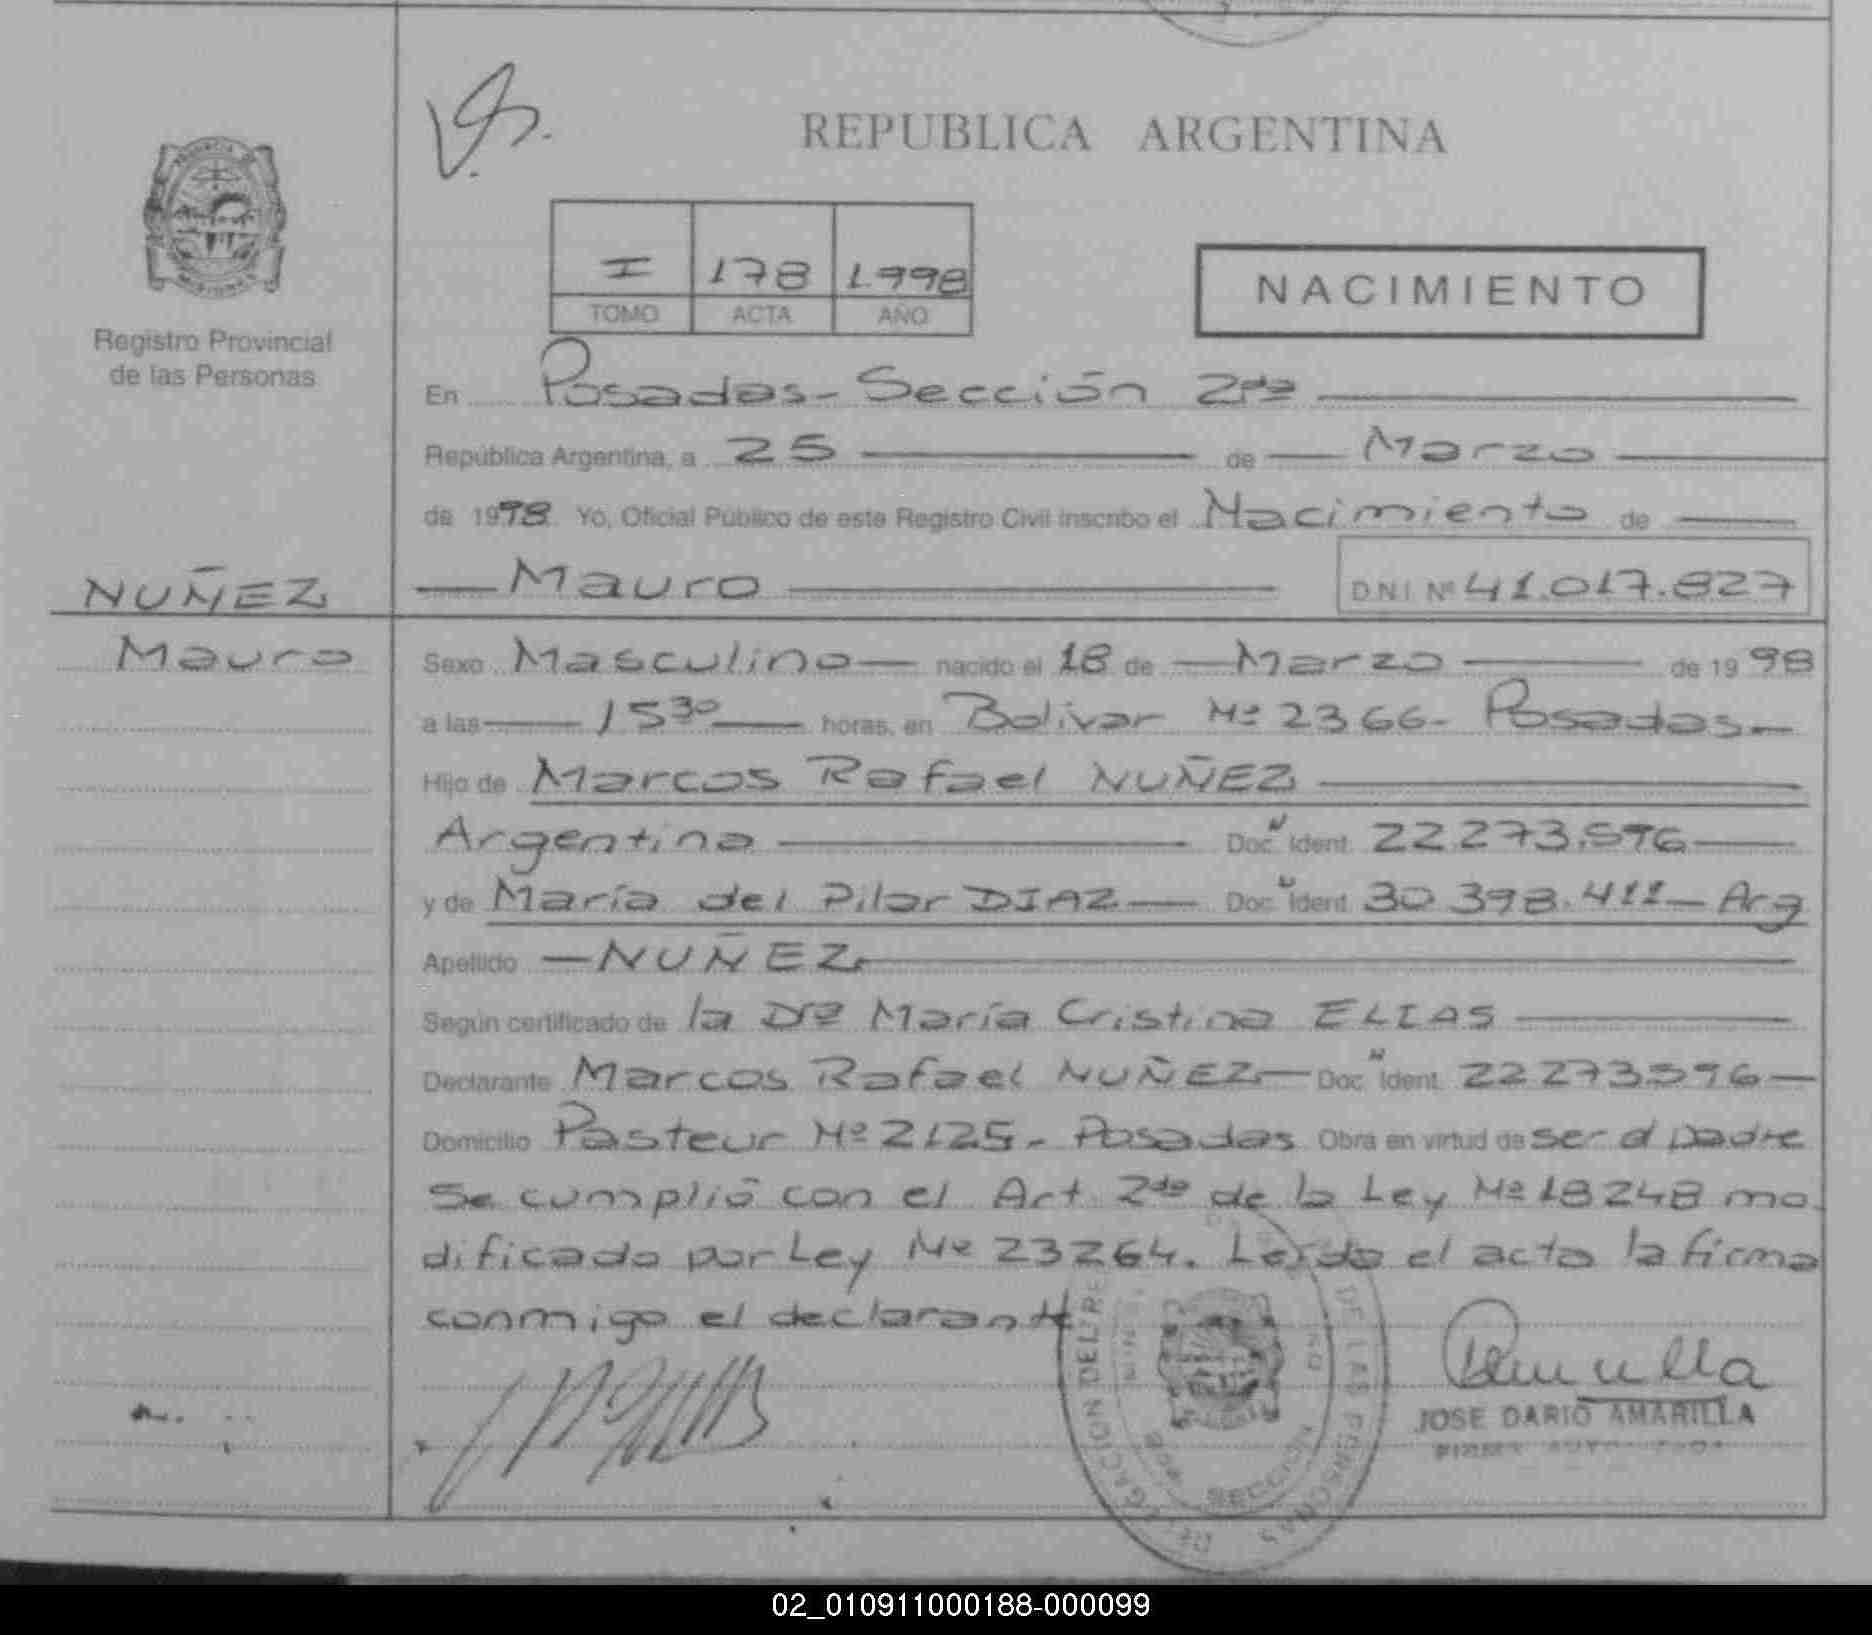 REPUBLICA ARGENTINA
I 178 1998
TOMO ACTA AÑO
NACIMIENTO
Registro Provincial
de las Personas
En Posadas - Sección 2da
República Argentina, a 25 de Marzo
de 1998 Yo, Oficial Público de este Registro Civil inscribo el Nacimiento de
Mauro D.N.I. Nº 41.017.827
NUÑEZ
Mauro
Sexo Masculino nacido el 18 de Marzo de 1998
a las 15 30 horas, en Bolivar Nº 2366 - Posadas
Hijo de Marcos Rafael NUÑEZ
Argentina Doc. Ident. 22.273.596
y de María del Pilar DIAZ Doc. Ident. 30.398.411 - Arg
Apellido NUÑEZ
Según certificado de la Dra María Cristina ELIAS
Declarante Marcos Rafael NUÑEZ Doc. Ident. 22273596
Domicilio Pasteur Nº 2125 - Posadas Obra en virtud de ser el padre
Se cumplió con el Art 2do de la Ley Nº 18248 mo
dificado por Ley Nº 23264. Leida el acta la firma
conmigo el declarante
JOSE DARIO AMARILLA
DELEGACION DEL RE DE LAS PERSONAS
SECCION
02_010911000188-000099